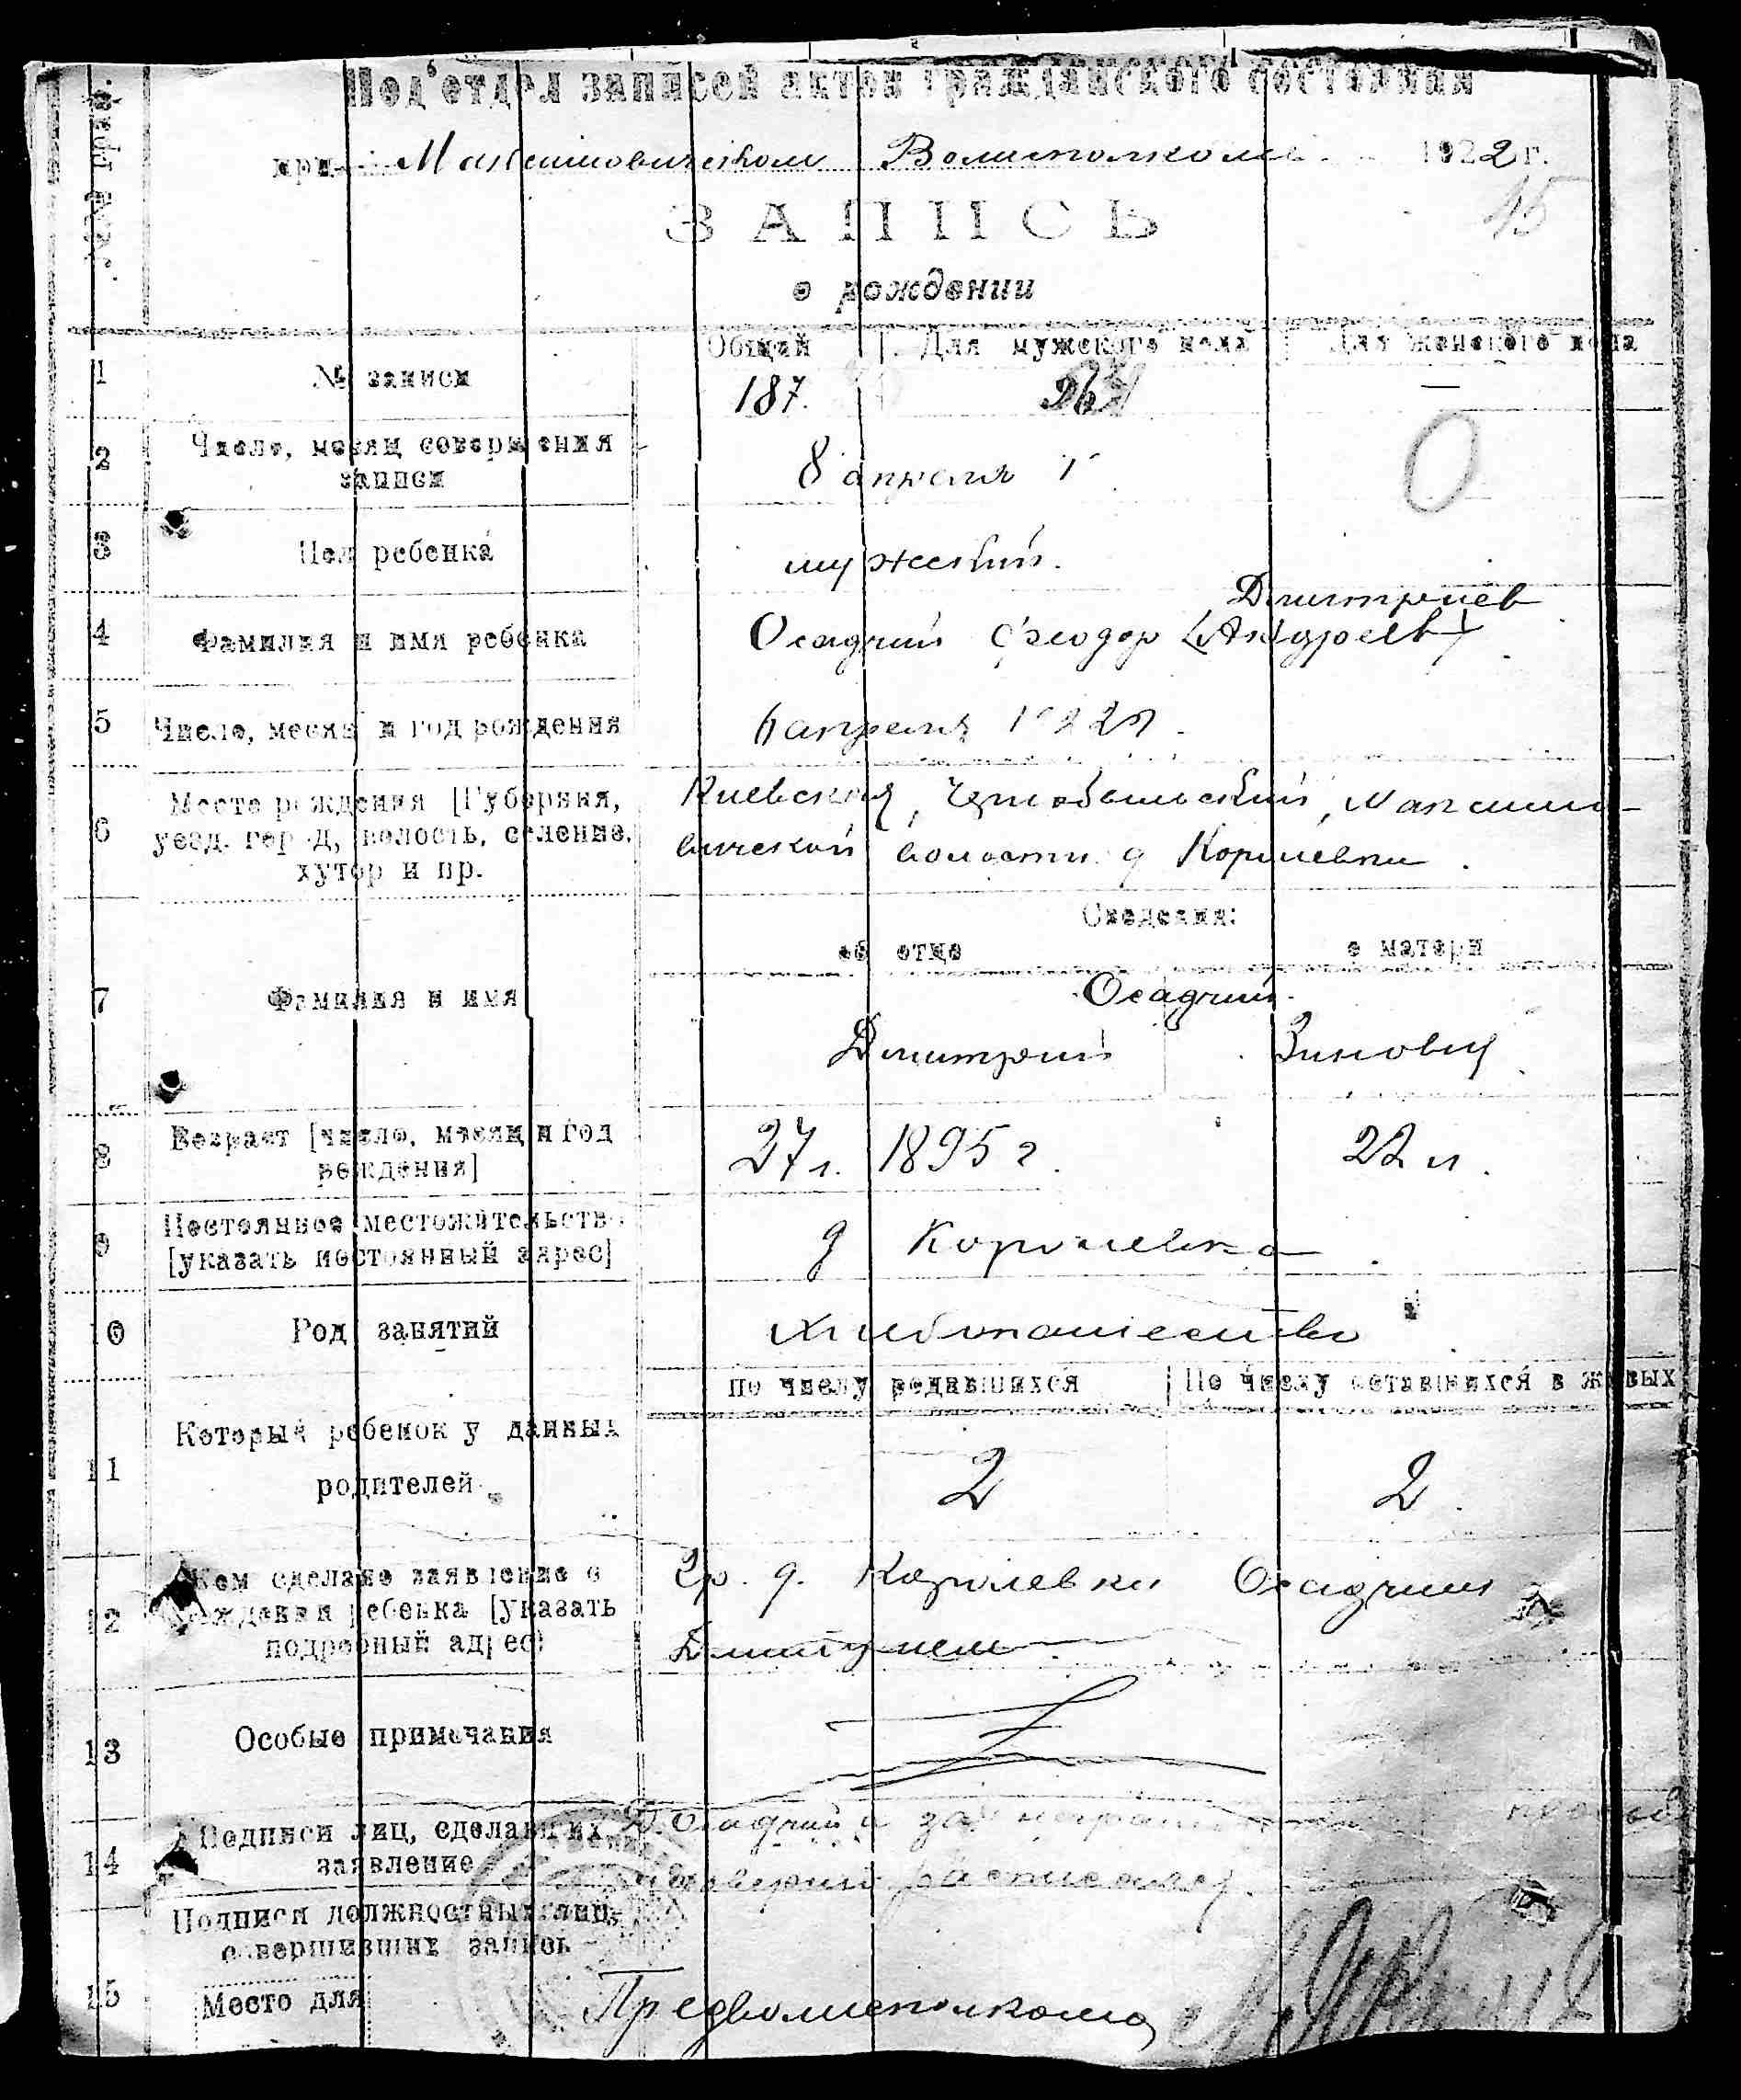 Под'отдел записей актов гражданского состояния
при Максимовическом Волисполкоме 1922 г.
45
ЗАПИСЬ
о рождении
Общий Для мужского пола Для женского пола
1 № записи 187. —
2 Число, месяц совершения
записи
8 апреля
3 Пол ребенка мужеский.
Дмитриев
4 Фамилия и имя ребенка Осадчий Феодор (Андреев)
5 Число, месяц и год рождения 6 апреля 1922 г.
6 Место рождения [Губерния,
уезд, город, волость, селение,
хутор и пр.
Киевская, Чернобыльский, Максимо-
вической волости д Королевки.
Сведения:
об отце о матери
7 Фамилия и имя Осадчий
Дмитрий Зиновия
8 Возраст [число, месяц и год
рождения]
27 л. 1895 г. 22 л.
9 Постоянное местожительство
[указать постоянный адрес]
д Королевка
10 Род занятий Хлибопашество
По числу родившихся По числу оставшихся в живых
11 Который ребенок у данных
родителей
2 2
12 Кем сделано заявление о
рождении ребенка [указать
подробный адрес]
Гр. д. Королевки Осадчим
Дмитрием
13 Особые примечания
14 Подписи лиц, сделавших
заявление
Д. Осадчий а за
расписался
Подписи должностных лиц,
совершивших запись
15 Место для
Предволисполкома